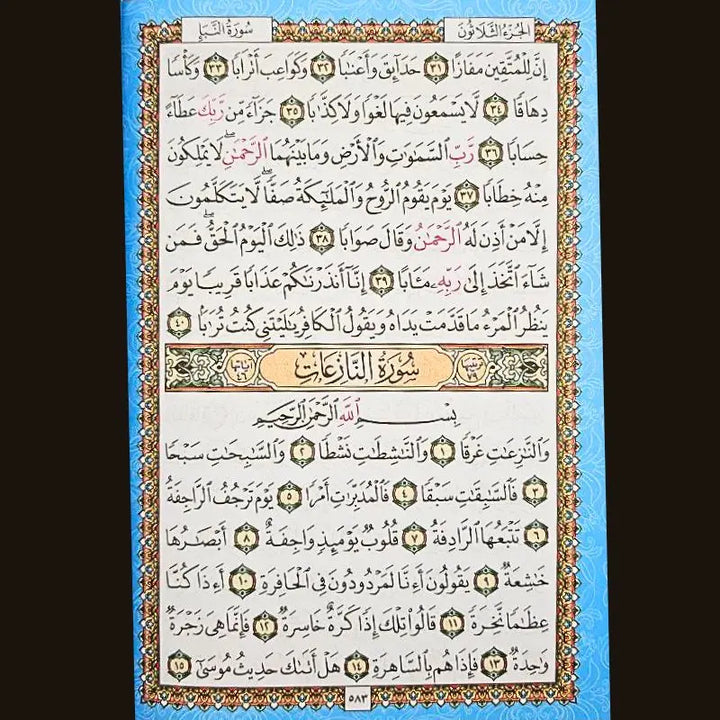 سُورَةُ النَّبَإِ
الجُزْءُ الثَّلَاثُونَ
إِنَّ لِلْمُتَّقِينَ مَفَازًا ٣١ حَدَآئِقَ وَأَعْنَٰبًا ٣٢ وَكَوَاعِبَ أَتْرَابًا ٣٣ وَكَأْسًا
دِهَاقًا ٣٤ لَّا يَسْمَعُونَ فِيهَا لَغْوًا وَلَا كِذَّٰبًا ٣٥ جَزَآءً مِّن رَّبِّكَ عَطَآءً
حِسَابًا ٣٦ رَّبِّ السَّمَٰوَٰتِ وَالْأَرْضِ وَمَا بَيْنَهُمَا الرَّحْمَٰنِۖ لَا يَمْلِكُونَ
مِنْهُ خِطَابًا ٣٧ يَوْمَ يَقُومُ الرُّوحُ وَالْمَلَٰٓئِكَةُ صَفًّاۖ لَّا يَتَكَلَّمُونَ
إِلَّا مَنْ أَذِنَ لَهُ الرَّحْمَٰنُ وَقَالَ صَوَابًا ٣٨ ذَٰلِكَ الْيَوْمُ الْحَقُّۖ فَمَن
شَآءَ اتَّخَذَ إِلَىٰ رَبِّهِۦ مَـَٔابًا ٣٩ إِنَّآ أَنذَرْنَٰكُمْ عَذَابًا قَرِيبًا يَوْمَ
يَنظُرُ الْمَرْءُ مَا قَدَّمَتْ يَدَاهُ وَيَقُولُ الْكَافِرُ يَٰلَيْتَنِي كُنتُ تُرَٰبًۢا ٤٠
سُورَةُ النَّازِعَاتِ
آيَاتُهَا ٤٦
بِسْمِ اللَّهِ الرَّحْمَٰنِ الرَّحِيمِ
وَالنَّٰزِعَٰتِ غَرْقًا ١ وَالنَّٰشِطَٰتِ نَشْطًا ٢ وَالسَّٰبِحَٰتِ سَبْحًا
٣ فَالسَّٰبِقَٰتِ سَبْقًا ٤ فَالْمُدَبِّرَٰتِ أَمْرًا ٥ يَوْمَ تَرْجُفُ الرَّاجِفَةُ
٦ تَتْبَعُهَا الرَّادِفَةُ ٧ قُلُوبٌ يَوْمَئِذٍ وَاجِفَةٌ ٨ أَبْصَٰرُهَا
خَٰشِعَةٌ ٩ يَقُولُونَ أَءِنَّا لَمَرْدُودُونَ فِي الْحَافِرَةِ ١٠ أَءِذَا كُنَّا
عِظَٰمًا نَّخِرَةً ١١ قَالُوا تِلْكَ إِذًا كَرَّةٌ خَاسِرَةٌ ١٢ فَإِنَّمَا هِيَ زَجْرَةٌ
وَٰحِدَةٌ ١٣ فَإِذَا هُم بِالسَّاهِرَةِ ١٤ هَلْ أَتَىٰكَ حَدِيثُ مُوسَىٰٓ ١٥
٥٨٣